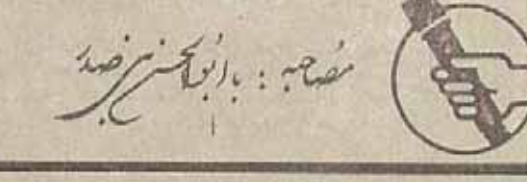 مُصاحبه : با ابوُالحسن بنی صدر
۱